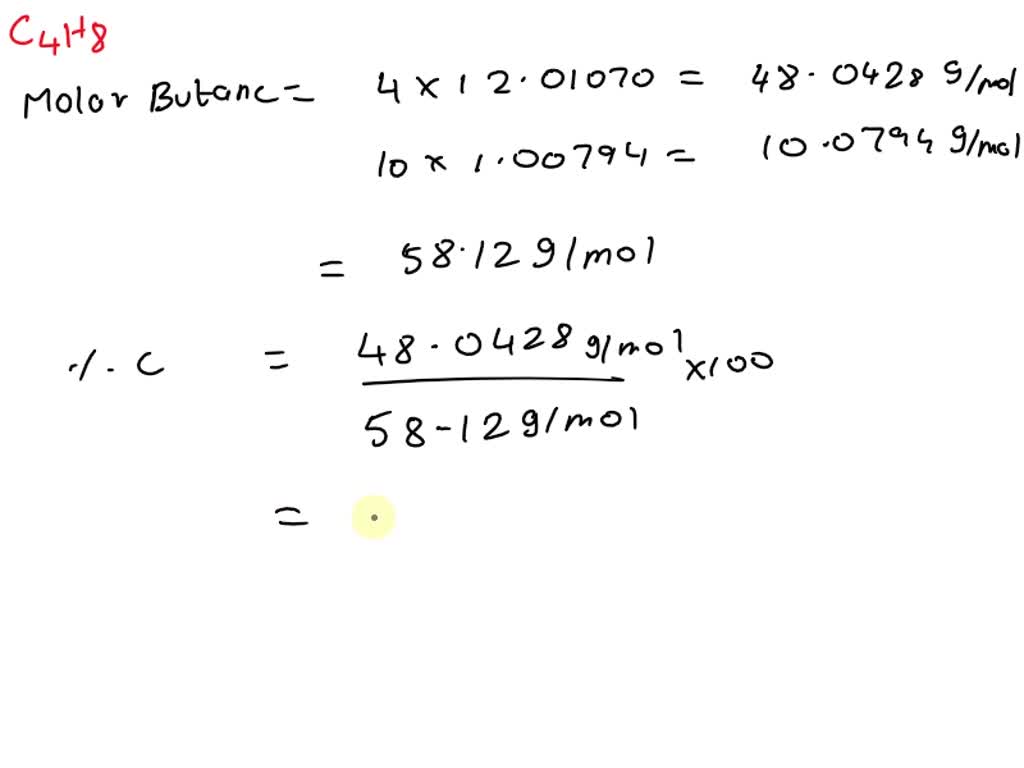 C4H8
Molar Butane = 4 x 12.01070 = 48.0428 g/mol
10 x 1.00794 = 10.0794 g/mol
= 58.12 g/mol
·/. C = 48.0428 g/mol x100
58-12 g/mol
=